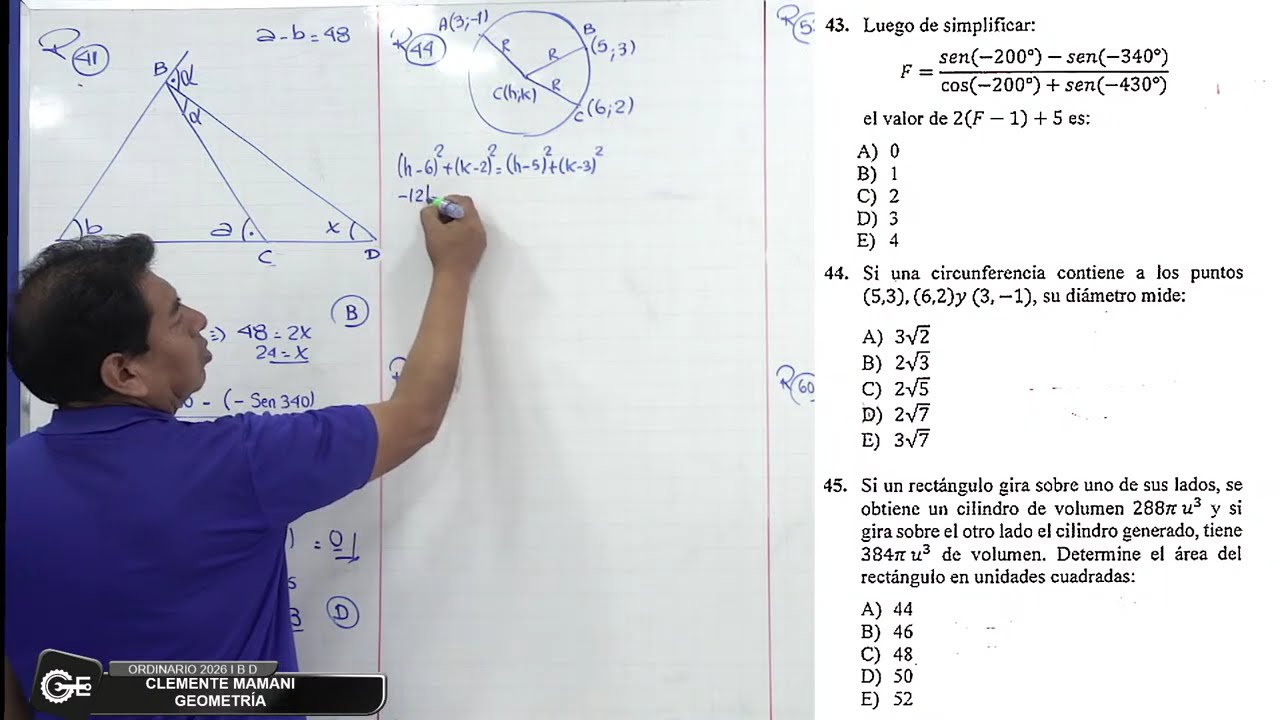 R 41
a - b = 48
B
α
α
b
a
x
C
D
B
=) 48 = 2x
24 = x
- (- Sen 340)
= 01
D
R 44
A(3;-1)
B
(5;3)
R
R
R
C(h;k)
C (6;2)
(h-6)² + (k-2)² = (h-5)² + (k-3)²
-12
R 60
43. Luego de simplificar:
F = \frac{sen(−200°) − sen(−340°)}{cos(−200°) + sen(−430°)}
el valor de 2(F − 1) + 5 es:
A) 0
B) 1
C) 2
D) 3
E) 4
44. Si una circunferencia contiene a los puntos
(5,3), (6,2)y (3, −1), su diámetro mide:
A) 3√2
B) 2√3
C) 2√5
D) 2√7
E) 3√7
45. Si un rectángulo gira sobre uno de sus lados, se
obtiene un cilindro de volumen 288π u³ y si
gira sobre el otro lado el cilindro generado, tiene
384π u³ de volumen. Determine el área del
rectángulo en unidades cuadradas:
A) 44
B) 46
C) 48
D) 50
E) 52
GEO
ORDINARIO 2026 I B D
CLEMENTE MAMANI
GEOMETRÍA